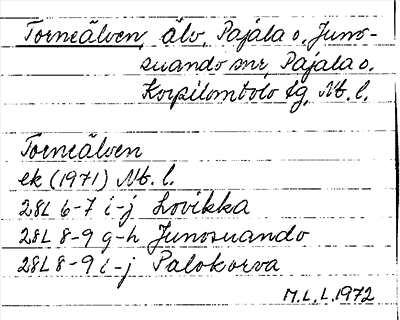 Torneälven, älv, Pajala o. Juno-
suando snr, Pajala o.
Korpilombolo tg, Nb. l.
Torneälven
ek (1971) Nb. l.
28L 6-7 i-j Lovikka
28L 8-9 g-h Junosuando
28L 8-9 i-j Palokorva
M. L. L. 1972